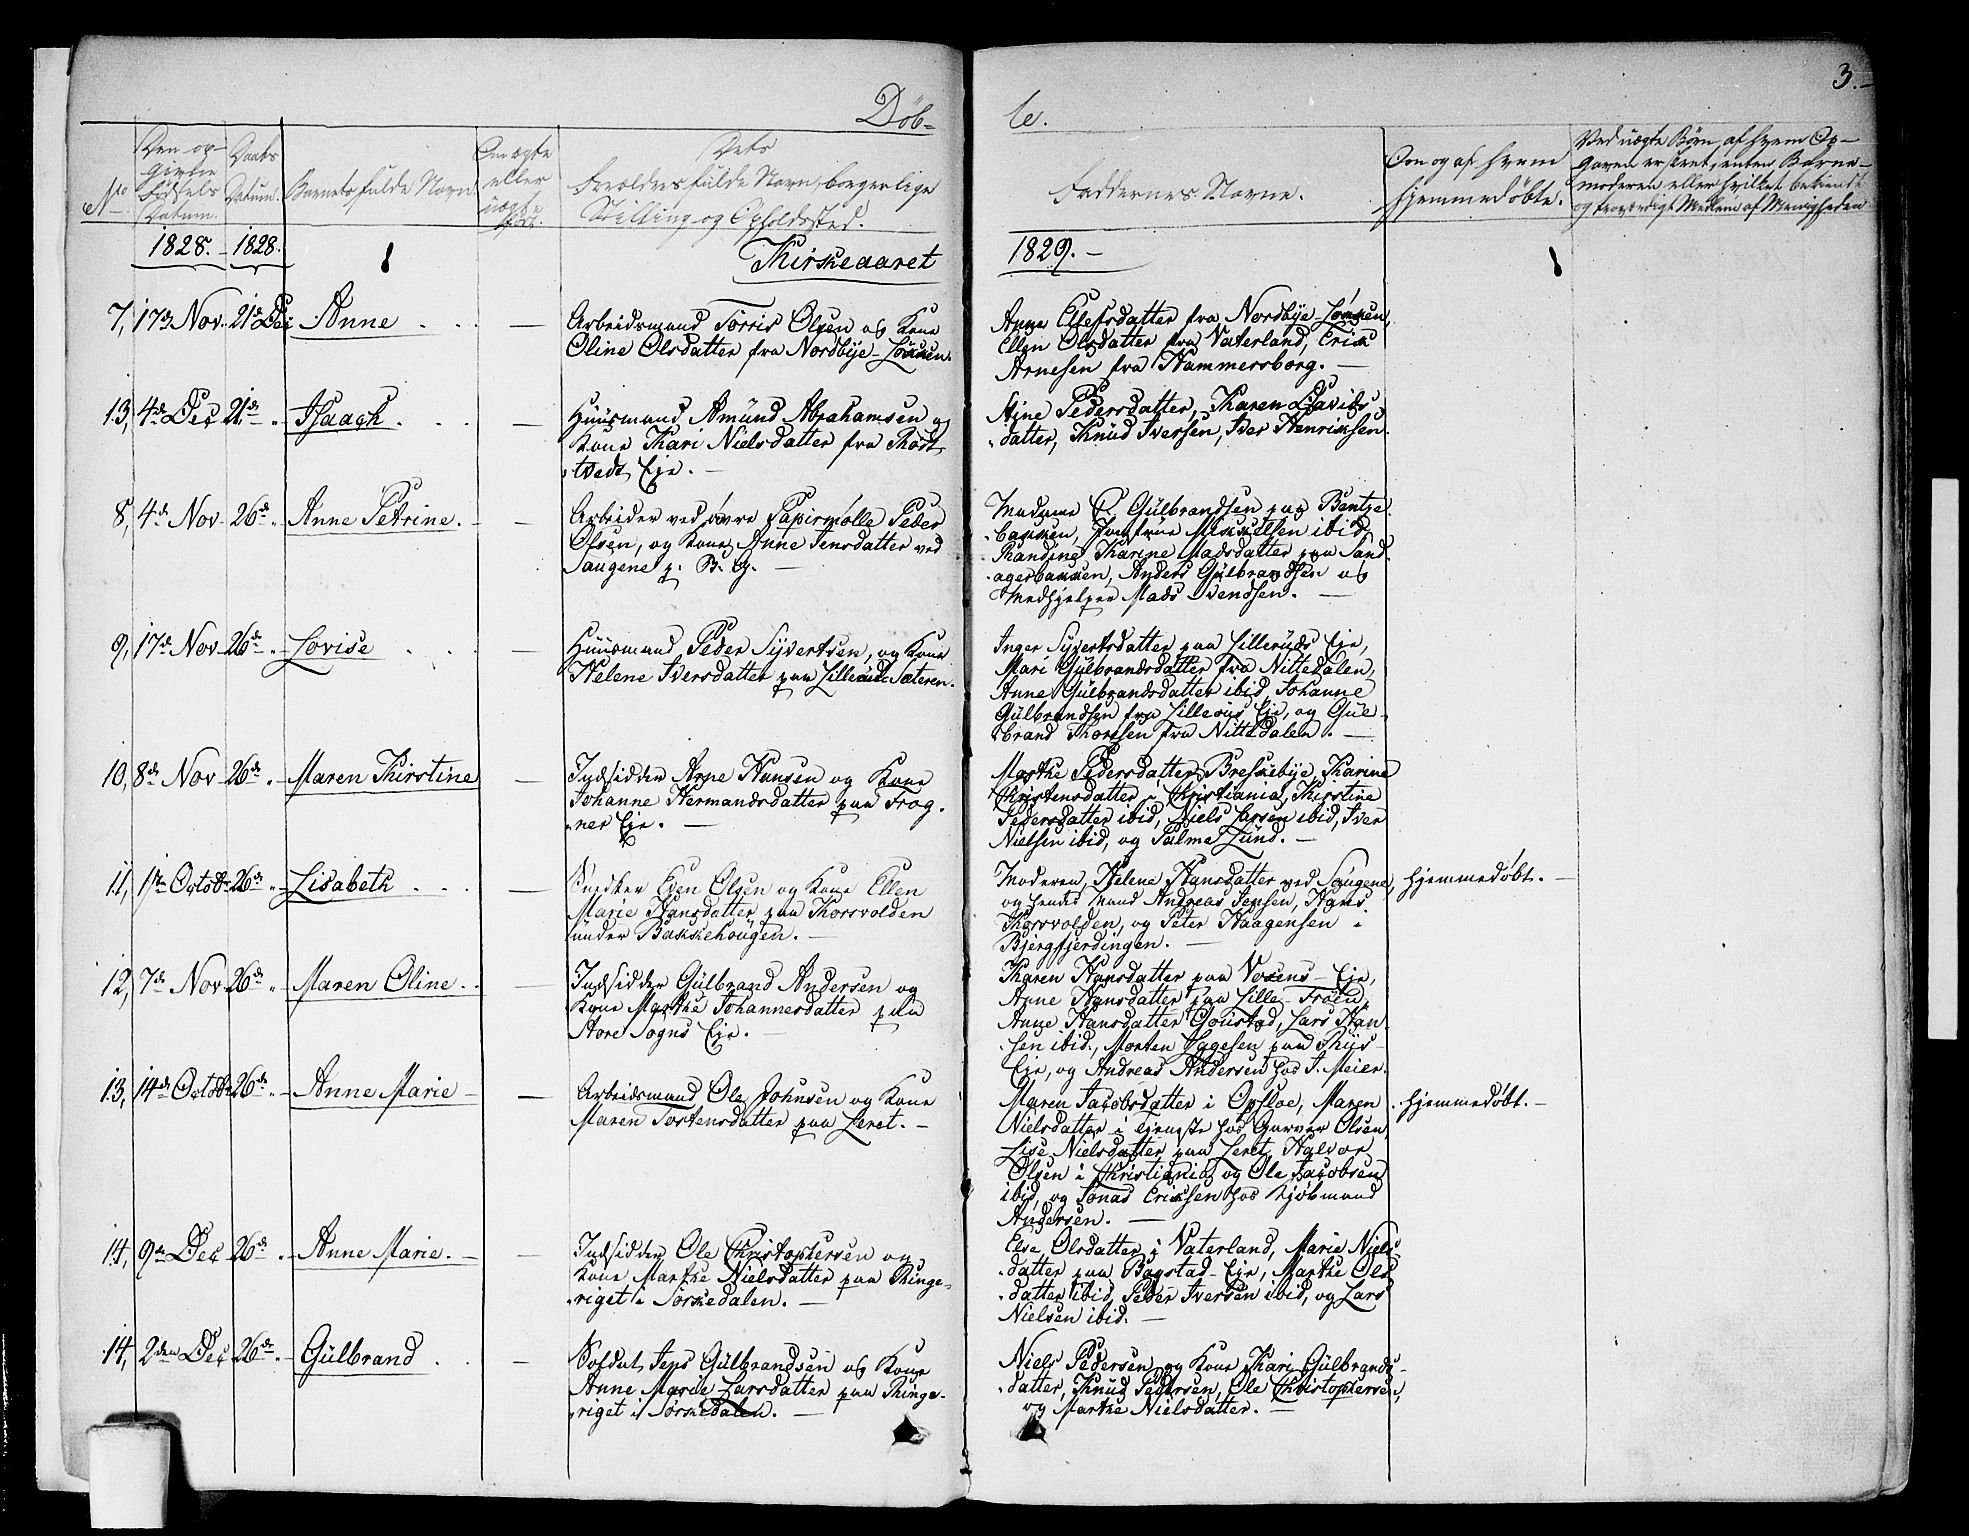 Døb-
te.
3.-
No
Den op-
givne
Fødsels
Datum.
Daabs
Datum.
Barnets fulde Navn
Om ægte
eller
uægte
født.
Dets
Forældres fulde Navn, borgerlige
Stilling og Opholdssted.
Faddernes Navne.
Om og af hvem
hjemmedøbt.
Ved uægte Børn, af hvem Op-
gaven er skeet, enten Barne-
moderen eller hvilket bekiendt
og troværdigt Medlem af Menigheden
1828. - 1828.
Kirkeaaret
1829. -
7, 17de Nov. 21de Dec Anne . . . —
Arbeidsmand Torris Olsen og Kone
Oline Olsdatter fra Nordbye-Løkken.
Anne Ellefsdatter fra Nordbye-Løkken,
Ellen Olsdatter fra Vaterland, Erick
Arnesen fra Hammersborg. —
13, 4de Dec 21de - „ Isaach . . . —
Huusmand Amund Abrahamsen og
Kone Kari Nielsdatter fra Røst
„tvedt Eje. —
Stine Pedersdatter, Karen Davids
„datter, Knud Iversen, Iver Henriksen.
8, 4de Nov 26de „ Anne Petrine. - —
Arbeider ved øvre Papirmølle Peder
Olsen, og Kone Anne Jensdatter ved
Saugene p. B. G. —
Madame P. Gulbrandsen paa Bentze
„bakken, Jomfrue Mikkelsen ibid,
Randine Karine Madsdatter paa Sand
„agerbakken, Anders Gulbrandsen og
Medhjelper Mads Svendsen. —
9, 17de Nov 26de „ Lovise . . . —
Huusmand Peder Syvertsen, og Kone
Helene Iversdatter paa Lillerud-Sæteren.
Inger Syvertsdatter paa Lilleruds Eje,
Mari Gulbrandsdatter fra Nittedalen,
Anne Gulbrandsdatter ibid, Johanne
Gulbrandsen fra Lilleruds Eje, og Gul-
„brand Thoresen fra Nittedalen. —
10, 8de Nov 26de „ - Maren Kirstine —
Indsidder Arne Hansen og Kone
Johanne Hermandsdatter paa Frog-
„ner Eje. —
Marthe Pedersdatter Breskebye, Karine
Christensdatter i Christiania, Kirstine
Pedersdatter ibid, Niels Larsen ibid, Iver
Nielsen ibid, og Palma Lund. —
11, 1ste Octobr 26de „ - Lisabeth . . . —
Snedker Even Olsen og Kone Ellen
Marie Hansdatter paa Thorsvolden
under Bakkehougen. —
Moderen, Helene Hansdatter ved Saugene,
og hendes Mand Andreas Jensen, Hans
Thorsvolden, og Peter Haagensen i
Bjergfjerdingen. —
hjemmedøbt. —
12, 7de Nov 26de „ Maren Oline . . —
Indsidder Gulbrand Andersen og
Kone Marthe Johannesdatter paa
Store Sogns Eje. —
Karen Hansdatter paa Voxens-Eje,
Anne Hansdatter paa Lille-Frøen,
Anne Hansdatter Goustad, Lars Han-
„sen ibid., Morten Eggesen paa Ruus-
Eje, og Andreas Andersen hos J. Meier.
13, 14de Octobr 26de „ - Anne Marie - —
Arbeidsmand Ole Johnsen og Kone
Maren Tostensdatter paa Leret. —
Maren Jacobsdatter i Opsloe, Maren
Nielsdatter i tjeneste hos Garver Olsen,
Lise Nielsdatter paa Leret, Halvor
Olsen i Christiania, og Ole Jacobsen
ibid, og Jonas Eriksen hos Kjøbmand
Andersen. —
hjemmedøbt. —
14, 9de Dec 26de „ - Anne Marie. - —
Indsidder Ole Christophersen og
Kone Marthe Nielsdatter paa Ringe-
„riget i Sørkedalen. —
Else Olsdatter i Vaterland, Marie Niels-
„datter paa Bogstad-Eje, Marthe Ols
„datter ibid, Peder Iversen ibid, og Lars
Nielsen ibid. —
14, 2den Dec 26de „ - Gulbrand . . —
Soldat Jens Gulbrandsen og Kone
Anne Marie Larsdatter paa Ringe-
„riget i Sørkedalen. —
Niels Pedersen og Kone Kari Gulbrands-
„datter, Knud Pedersen, Ole Christophersen,
og Marthe Nielsdatter. —